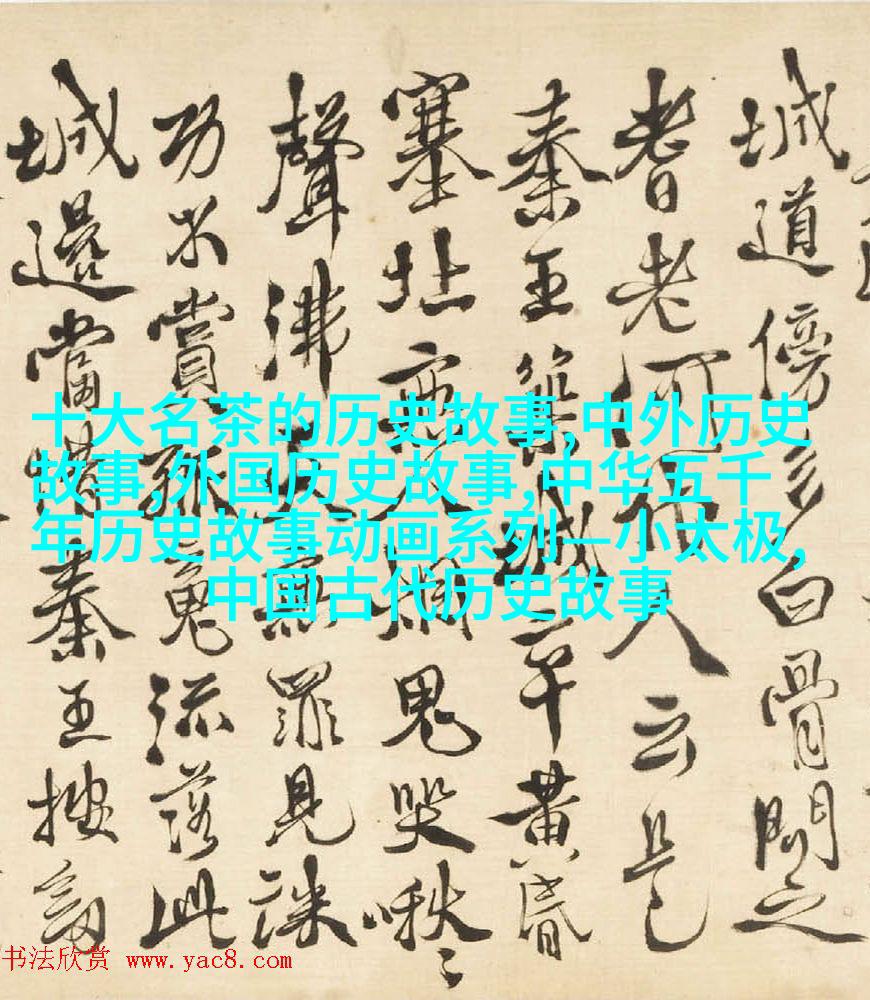 城道傍多白骨問之
耆老何代人云是
秦王築城卒黄昏
塞北無人煙鬼哭啾〻
聲沸天無罪見誅
功不賞孤魂流落此
城邊當昔秦王按劍
十大名茶的历史故事,中外历史
故事,外国历史故事,中华五千
年历史故事动画系列—小太极,
中国古代历史故事
书法欣赏 www.yac8.com